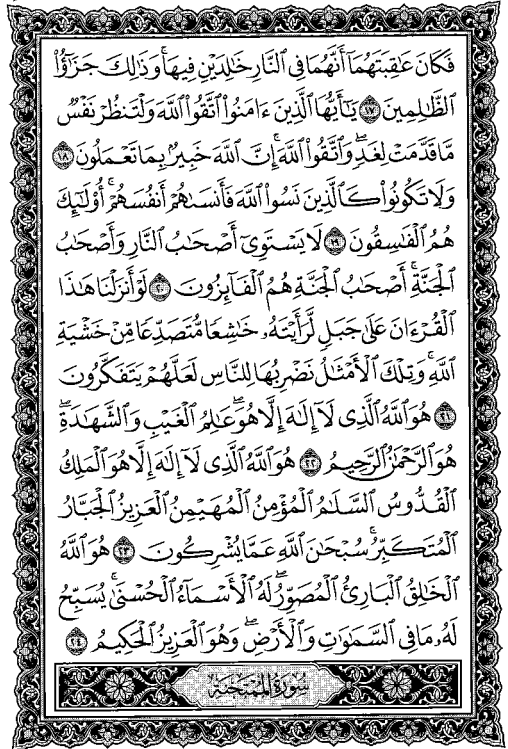 فَكَانَ عَٰقِبَتَهُمَآ أَنَّهُمَا فِى ٱلنَّارِ خَٰلِدَيْنِ فِيهَا ۚ وَذَٰلِكَ جَزَٰٓؤُا۟
ٱلظَّٰلِمِينَ ١٧ يَٰٓأَيُّهَا ٱلَّذِينَ ءَامَنُوا۟ ٱتَّقُوا۟ ٱللَّهَ وَلْتَنظُرْ نَفْسٌ
مَّا قَدَّمَتْ لِغَدٍ ۖ وَٱتَّقُوا۟ ٱللَّهَ ۚ إِنَّ ٱللَّهَ خَبِيرٌۢ بِمَا تَعْمَلُونَ ١٨
وَلَا تَكُونُوا۟ كَٱلَّذِينَ نَسُوا۟ ٱللَّهَ فَأَنسَىٰهُمْ أَنفُسَهُمْ ۚ أُو۟لَٰٓئِكَ
هُمُ ٱلْفَٰسِقُونَ ١٩ لَا يَسْتَوِىٓ أَصْحَٰبُ ٱلنَّارِ وَأَصْحَٰبُ
ٱلْجَنَّةِ ۚ أَصْحَٰبُ ٱلْجَنَّةِ هُمُ ٱلْفَآئِزُونَ ٢٠ لَوْ أَنزَلْنَا هَٰذَا
ٱلْقُرْءَانَ عَلَىٰ جَبَلٍ لَّرَأَيْتَهُۥ خَٰشِعًا مُّتَصَدِّعًا مِّنْ خَشْيَةِ
ٱللَّهِ ۚ وَتِلْكَ ٱلْأَمْثَٰلُ نَضْرِبُهَا لِلنَّاسِ لَعَلَّهُمْ يَتَفَكَّرُونَ
٢١ هُوَ ٱللَّهُ ٱلَّذِى لَآ إِلَٰهَ إِلَّا هُوَ ۖ عَٰلِمُ ٱلْغَيْبِ وَٱلشَّهَٰدَةِ ۖ
هُوَ ٱلرَّحْمَٰنُ ٱلرَّحِيمُ ٢٢ هُوَ ٱللَّهُ ٱلَّذِى لَآ إِلَٰهَ إِلَّا هُوَ ٱلْمَلِكُ
ٱلْقُدُّوسُ ٱلسَّلَٰمُ ٱلْمُؤْمِنُ ٱلْمُهَيْمِنُ ٱلْعَزِيزُ ٱلْجَبَّارُ
ٱلْمُتَكَبِّرُ ۚ سُبْحَٰنَ ٱللَّهِ عَمَّا يُشْرِكُونَ ٢٣ هُوَ ٱللَّهُ
ٱلْخَٰلِقُ ٱلْبَارِئُ ٱلْمُصَوِّرُ ۖ لَهُ ٱلْأَسْمَآءُ ٱلْحُسْنَىٰ ۚ يُسَبِّحُ
لَهُۥ مَا فِى ٱلسَّمَٰوَٰتِ وَٱلْأَرْضِ ۖ وَهُوَ ٱلْعَزِيزُ ٱلْحَكِيمُ ٢٤
سُورَةُ الْمُمْتَحَنَةِ